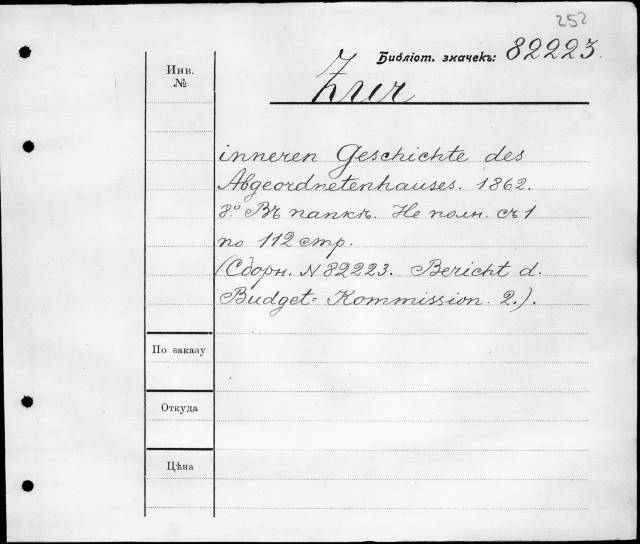 252
Библіот. значекъ: 82223.
Инв.
№
Zur
inneren Geschichte des
Abgeordnetenhauses. 1862.
8.° Въ папкѣ. Не полн. съ 1
по 112 стр.
(Сборн. № 82223. Bericht d.
Budget= Kommission. 2.).
По заказу
Откуда
Цѣна